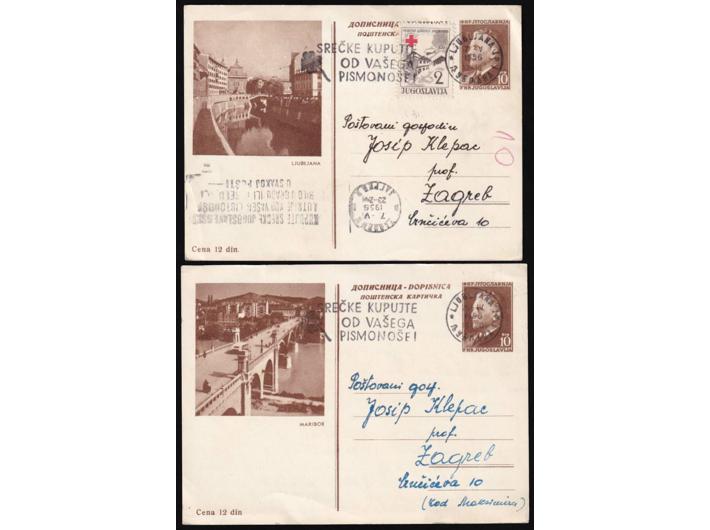 ДОПИСНИЦА
ПОШТЕНСКА
SREČKE KUPUJTE
OD VAŠEGA
PISMONOŠE!
2
JUGOSLAVIJA
LJUBLJANA
1956
10
FNR JUGOSLAVIJA
LJUBLJANA
Poštovani gospodin
Josip Klepac
prof.
Zagreb
Crnčićeva 10
10
7-V
1956
U SVAKOJ POŠTI
Cena 12 din
ДОПИСНИЦА - DOPISNICA
ПОШТЕНСКА КАРТИЧКА
ФНР ЈУГОСЛАВИЈА
SREČKE KUPUJTE
OD VAŠEGA
PISMONOŠE!
10
FNR JUGOSLAVIJA
MARIBOR
Poštovani gosp.
Josip Klepac
prof.
Zagreb
Crnčićeva 10
(kod Maksimira)
Cena 12 din